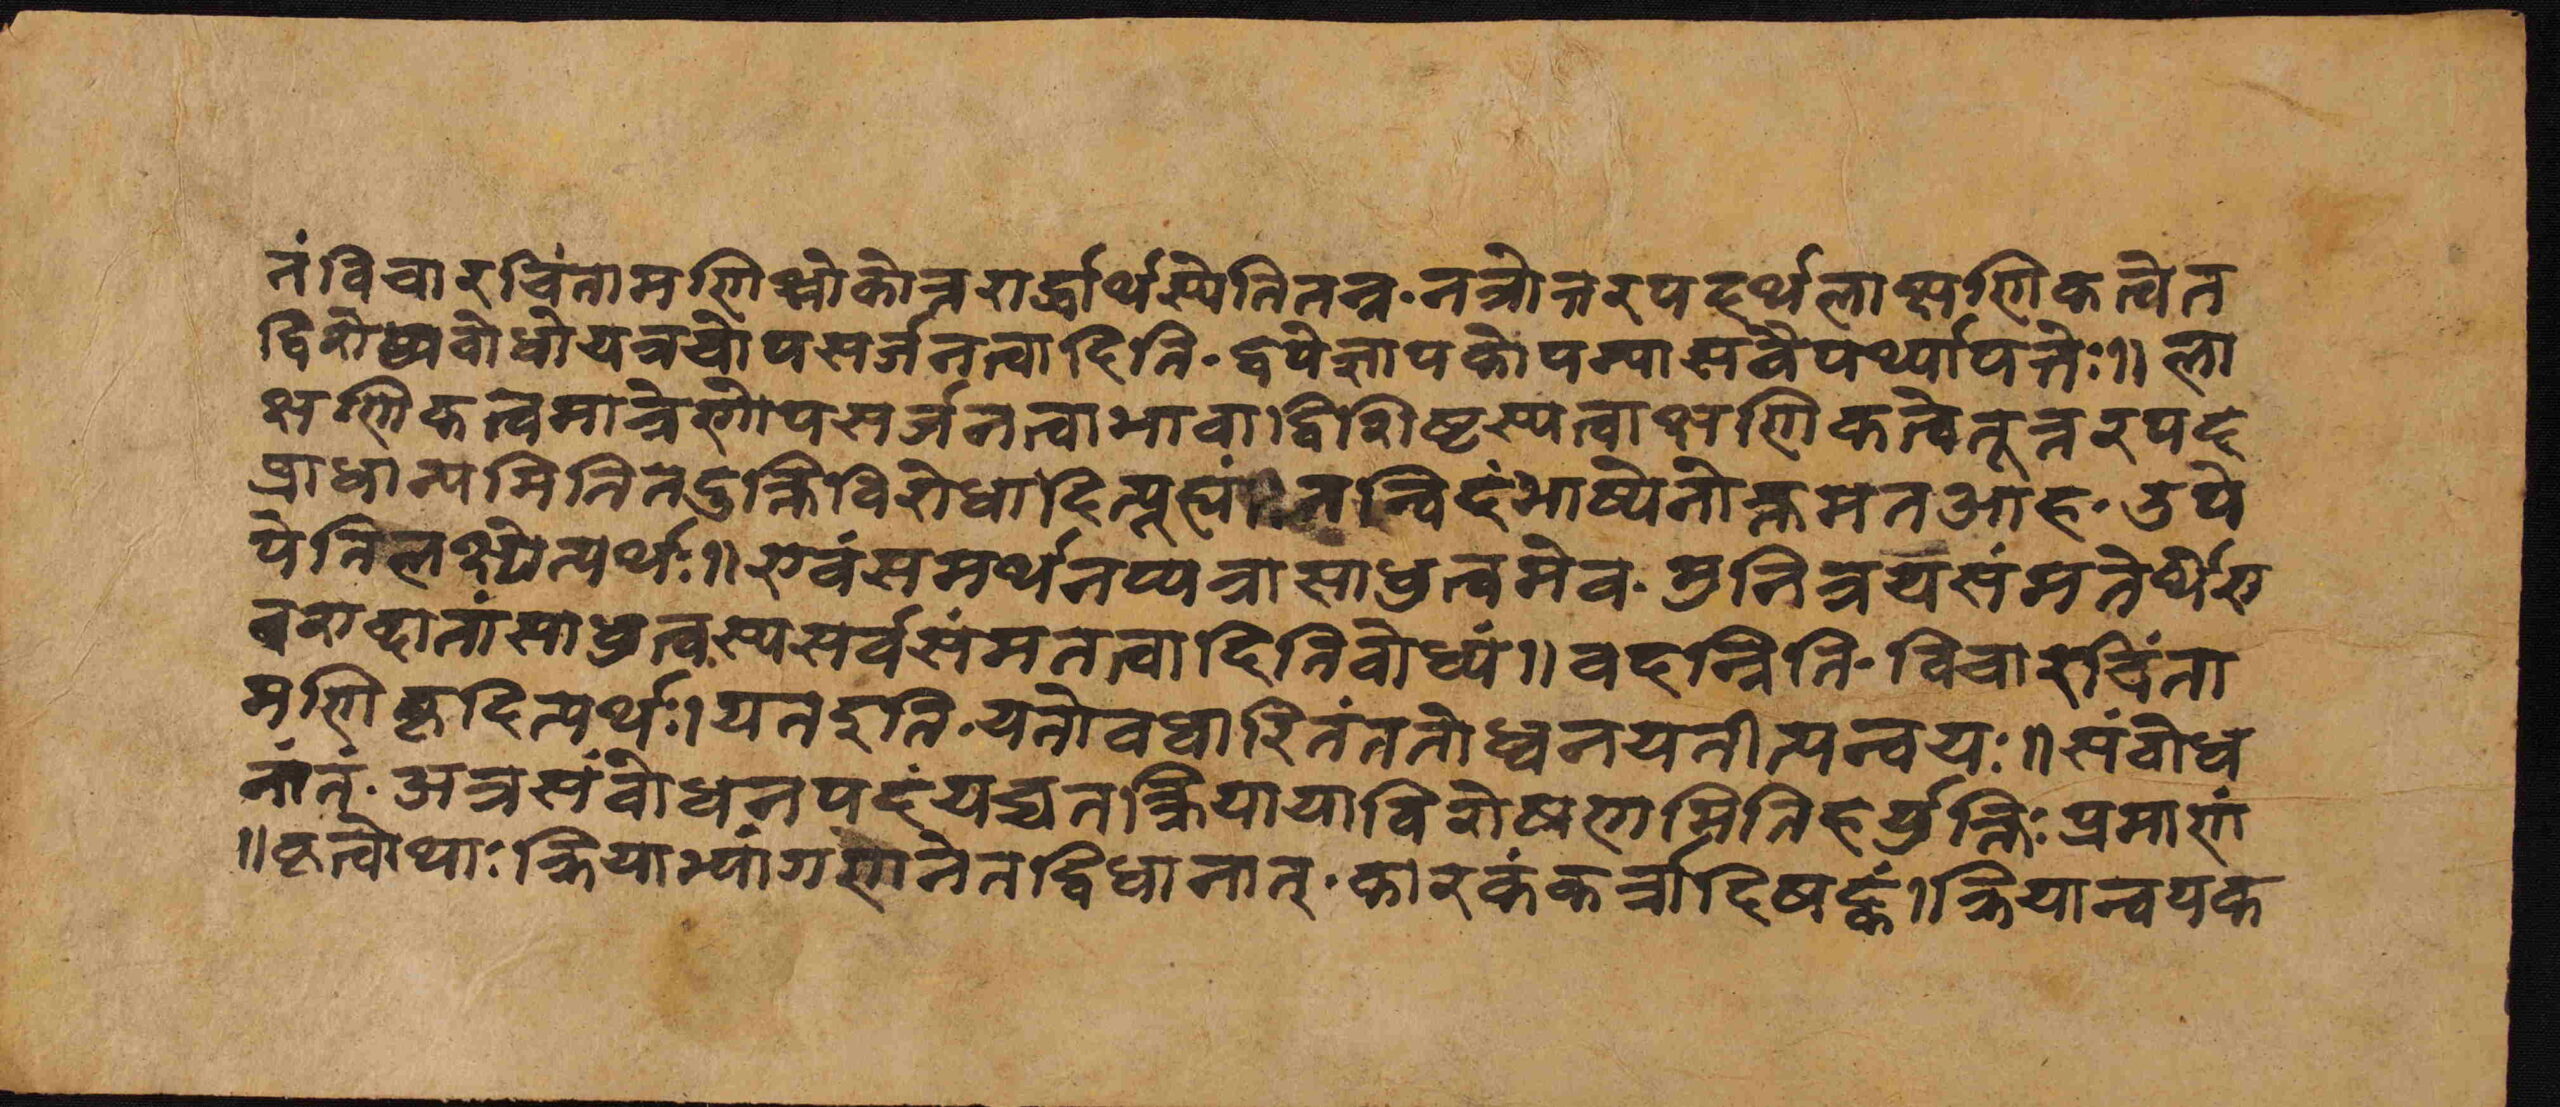 नं विचारचिंतामणिश्लोकोत्तरार्द्धार्थस्येति तन्न. नञोत्तरपदर्थलाक्षणिकत्वे त
द्विशेष्यबोधो यत्रयोपसर्जनत्वादिति. द्वये ज्ञापकोपन्यासवैयर्थ्यापत्तेः॥ ला
क्षणिकत्वमात्रेणोपसर्जनत्वाभावाद्विशिष्टस्यत्वाक्षणिकत्वे तूत्तरपद
प्राधान्यमिति तदुक्तिविरोधादित्यूह्यं॥ नन्विदं भाष्ये नोक्तमत आह. उपे
येति लक्ष्येत्यर्थः॥ एवं समर्थनप्यत्रासाधुत्वमेव. मुनित्रयसंमतेर्थे ए
व शब्दानां साधुत्वस्य सर्वसंमतत्वादिति बोध्यं॥ वदन्निति. विचारचिंता
मणिकृदित्यर्थः। यत इति. यतोवधारितं ततोध्वनयतीत्यन्वयः॥ संबोध
नांतं. अत्र संबोधनपदं यच्च तत्क्रियाया विशेषणमिति हर्युक्तिः प्रमाणं
॥ कृत्वोर्थाः क्रियाभ्यां गणनेतद्विधानात्. कारकं कर्त्रादिषट्कं। क्रियान्वयक